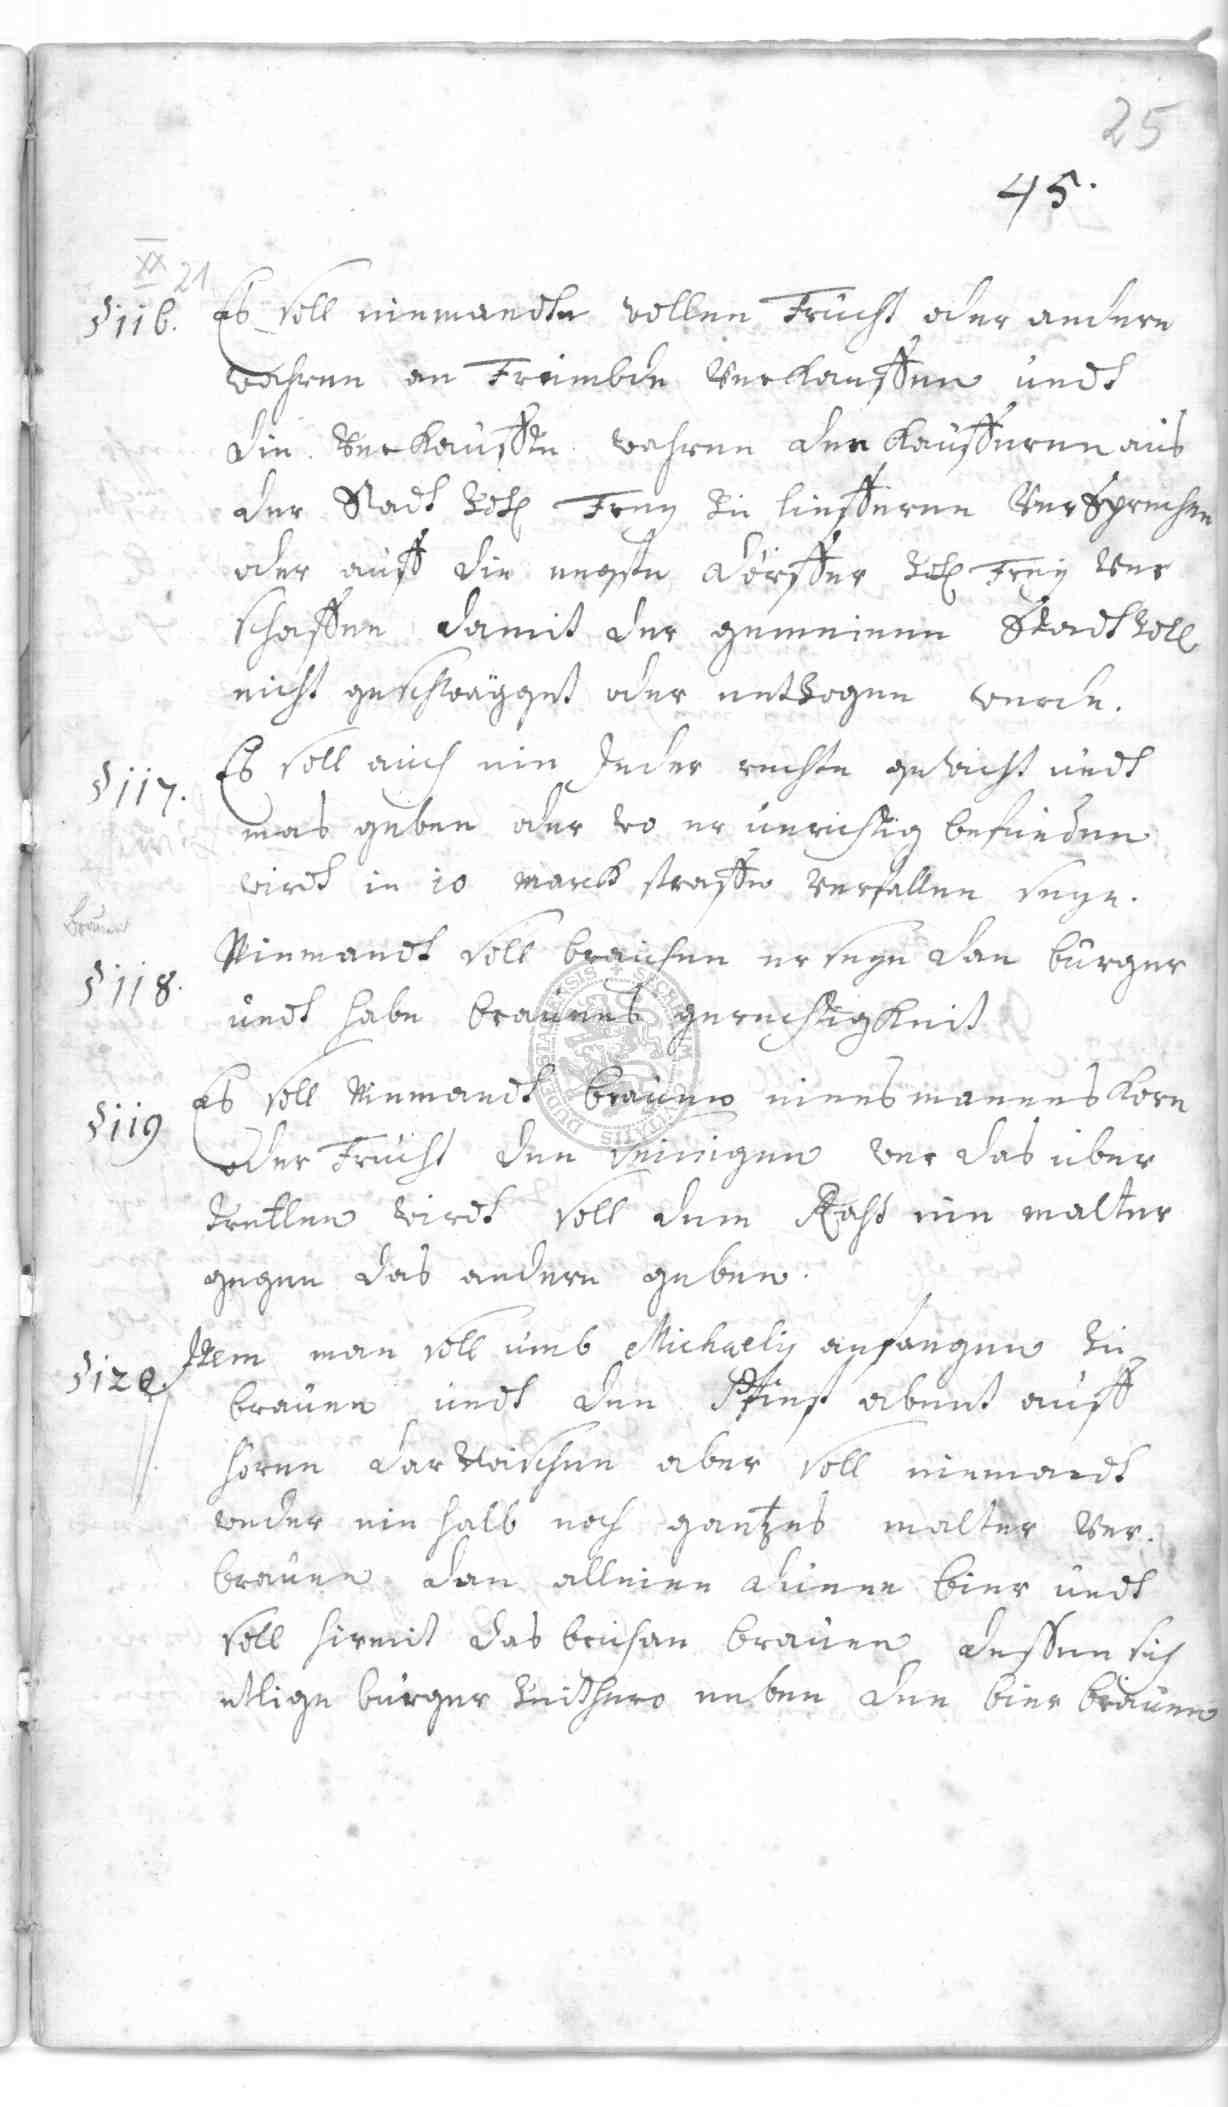 25
45.
XX 21
§ 116. Es soll niemandte wollen Frücht oder andere
wahren an Frembde Verkauffen undt
die Verkauffte wahren den Kaufferen aus
der Stadt Zoll Frey zu liefferen Versprechen
oder auff die negste dörffer Zoll Frey Ver
schaffen damit der gemeinen Stadt Zoll
nicht geschwägget oder entzogen werde.
§ 117. Es soll auch ein Jeder rechte gewicht undt
mas geben oder wo er unrichtig befunden
wirdt in 10 marck straffe verfallen seye.
Brauen
§ 118. Niemandt soll brauchen er seye dan bürger
undt habe brauens gerechtigkeit
SECRETUM CIVITATIS DUDERSTADENSIS
§ 119 Es soll Niemandt brauen eines mannes Korn
oder Frücht den seinigen wer das über
tretten wirdt soll dem Raht ein malter
gegen das andere geben.
§ 120. Item man soll umb Michaelis anfangen zu
brauen undt den Pfinst abent auff
horen darzwischen aber soll niemandt
weder ein halb noch gantzes malter ver-
brauen dan alleine dünne bier undt
soll hirmit das brühan brauen dessen sich
etlige bürger zeithero neben den bier brauen